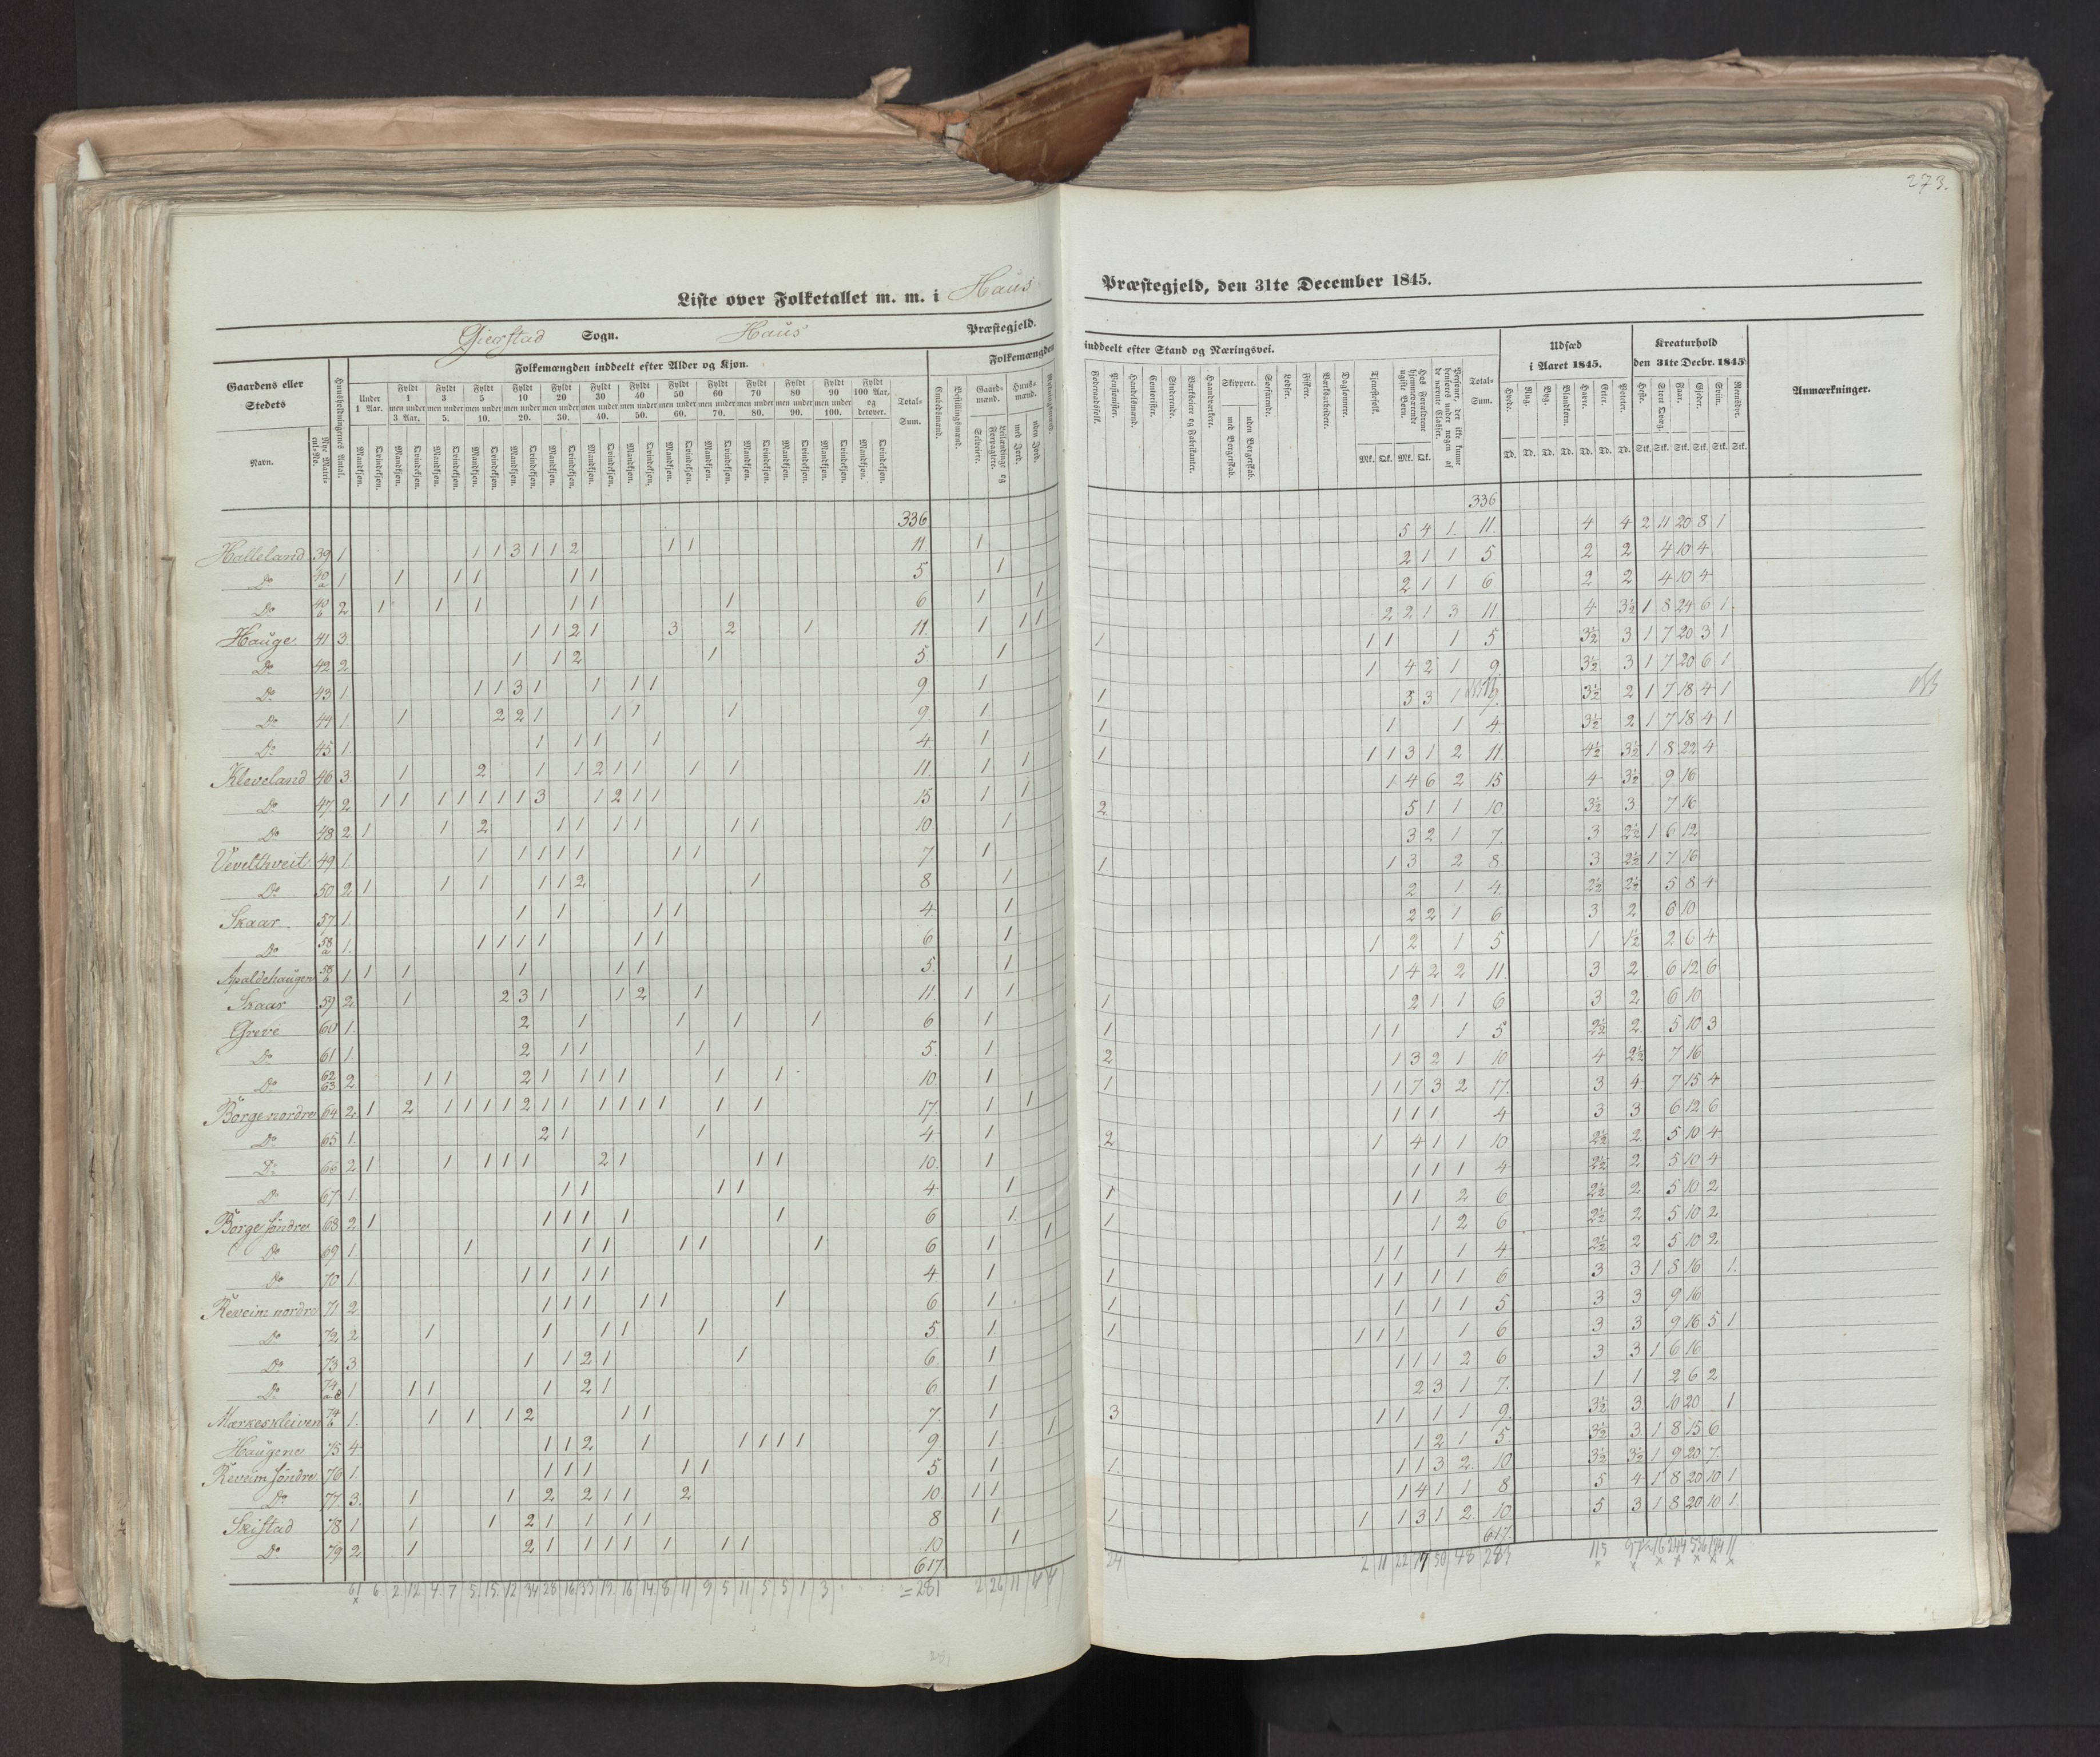 273.
Liste over Folketallet m. m. i Haus
Præstegjeld, den 31te December 1845.
Gierstad Sogn. Haus Præstegjeld.
Gaardens eller Stedets Navn.
Nye Matricul-No.
Huusholdningernes Antal.
Folkemængden inddeelt efter Alder og Kjøn.
Folkemængden
inddeelt efter Stand og Næringsvei.
Udsæd i Aaret 1845.
Kreaturhold den 31te Decbr. 1845
Anmærkninger.
Under 1 Aar.
Fyldt 1 men under 3 Aar.
Fyldt 3 men under 5.
Fyldt 5 men under 10.
Fyldt 10 men under 20.
Fyldt 20 men under 30.
Fyldt 30 men under 40.
Fyldt 40 men under 50.
Fyldt 50 men under 60.
Fyldt 60 men under 70.
Fyldt 70 men under 80.
Fyldt 80 men under 90.
Fyldt 90 men under 100.
Fyldt 100 Aar, og derover.
Mandkjøn. Qvindekjøn.
Total-Sum.
Embedsmænd.
Bestillingsmænd.
Gaardmænd.
Selveiere.
Leilændinge og Forpagtere.
Huusmænd.
med Jord.
uden Jord.
Føderaadsfolk.
Pensionister.
Handelsmænd.
Contorister.
Studerende.
Værkseiere og Fabrikanter.
Haandværkere.
Skippere.
med Borgerskab.
uden Borgerskab.
Søefarende.
Lodser.
Fiskere.
Værksarbeidere.
Daglønnere.
Tjenestefolk.
Hos Forældrene hjemmeværende ugifte Børn.
Personer, der ikke kunne henføres under nogen af de nævnte Classer.
Mk. Qk. Mk. Qk.
Total-Sum.
Hvede. Rug. Byg. Blandkorn. Havre. Erter. Poteter.
Td. Td. Td. Td. Td. Td. Td.
Heste. Stort Qvæg. Faar. Gjeder. Sviin. Rensdyr.
Stk. Stk. Stk. Stk. Stk. Stk.
336 336
Halleland 39 1 1 1 3 1 1 2 1 1 11 1 5 4 1 11. 4 4 2 11 20 8 1
Do 40 a 1 1 1 1 1 1 5 1 2 1 1 5 2 2 4 10 4
Do 40 b 2 1 1 1 1 1 1 6 1 1 2 1 1 6 2 2 4 10 4
Hauge 41 3 1 1 2 1 3 2 1 11. 1 1 1 2 2 1 3 11 4 3½ 1 8 24 6 1
Do 42 2 1 1 2 1 5 1 1 1 1 1 5 3½ 3 1 7 20 3 1
Do 43 1 1 1 3 1 1 1 1 9 1 1 4 2 1 9 3½ 3 1 7 20 6 1
Do 44 1 1 2 2 1 1 1 1 9 1 1 3 3 1 9 3½ 2 1 7 18 4 1
Do 45 1 1 1 1 1 4 1 1 1 1 4 3½ 2 1 7 18 4 1
Kleveland 46 3 1 2 1 1 2 1 1 1 1 11 1 1 1 1 1 3 1 2 11 4½ 3½ 1 8 22 4
Do 47 2 1 1 1 1 1 1 1 3 1 2 1 1 15 1 1 1 4 6 2 15 4 3½ 9 16
Do 48 2 1 1 2 1 1 1 1 1 1 10 1 2 5 1 1 10 3½ 3 7 16
Vevelthveit 49 1 1 1 1 1 1 1 1 7 1 3 2 1 7 3 2½ 1 6 12
Do 50 2 1 1 1 1 1 2 1 8 1 1 1 3 2 8 3 2½ 1 7 16
Skaar 57 1 1 1 1 1 4 1 2 1 4 2½ 2½ 5 8 4
Do 58 a 1 1 1 1 1 1 1 6 1 2 2 1 6 3 2 6 10
Apaldehaugen 58 b 1 1 1 1 1 1 5 1 1 2 1 5 1 1½ 2 6 4
Skaar 59 2 1 2 3 1 1 2 1 11. 1 1 1 4 2 2 11 3 2 6 12 6
Greve 60 1 2 1 1 1 1 6 1 1 2 1 1 6 3 2 6 10
Do 61 1 2 1 1 1 5 1 1 1 1 1 5 2½ 2 5 10 3
Do 62 63 2 1 1 2 1 1 1 1 1 1 10 1 2 1 3 2 1 10 4 2½ 7 16
Borge nordre 64 2 1 2 1 1 1 1 2 1 1 1 1 1 1 1 1 17. 1 1 1 1 1 7 3 2 17. 3 4 7 15 4
Do 65 1 2 1 1 4 1 1 1 1 4 3 3 6 12 6
Do 66 2 1 1 1 1 1 2 1 1 1 10 1 2 1 4 1 1 10 2½ 2 5 10 4
Do 67 1 1 1 1 1 4 1 1 1 1 4 2½ 2 5 10 4
Borge søndre 68 2 1 1 1 1 1 1 6 1 1 1 1 2 6 2½ 2 5 10 2
Do 69 1 1 1 1 1 1 1 6 1 1 1 1 2 6 2½ 2 5 10 2
Do 70 1 1 1 1 1 4 1 1 1 1 4 2½ 2 5 10 2
Reveim nordre 71 2 1 1 1 1 1 1 6 1 1 1 1 1 1 6 3 3 1 8 16 1
Do 72 2 1 1 1 1 1 5 1 1 1 1 1 5 3 3 9 16
Do 73 3 1 1 2 1 1 6 1 1 1 1 1 1 6 3 3 9 16 5 1
Do 74 1 1 1 1 2 1 6 1 1 1 1 2 6 3 3 1 6 16
Mærkeskleiven 74 b 1 1 1 1 2 1 1 7 1 2 3 1 7 1 1 2 6 2
Haugene 75 4 1 1 2 1 1 1 1 1 9 1 1 3 1 1 1 1 9 3½ 3 10 20 1
Reveim søndre 76 1 1 1 1 1 1 5 1 1 2 1 5 3½ 3 1 8 15 6
Do 77 3 1 1 2 2 1 1 2 10 1 1 1 1 1 3 2 10 3½ 3½ 1 9 20 7
Seistad 78 1 1 1 2 1 1 1 1 8 1 1 4 1 1 8 5 4 1 8 20 10 1
Do 79 2 1 2 1 1 1 1 1 1 1 10 1 1 1 1 3 1 2 10 5 3 1 8 20 10 1
617 617
61 6 2 12 4 7 5 15 12 34 28 16 33 19 16 14 8 11 9 5 11 5 5 1 3 = 281 2 26 11
24 2 11 22 50 48 115 16 244 536 184 11